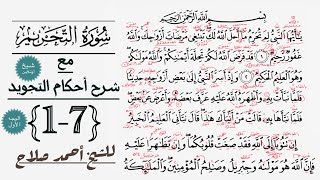 سورة التحريم
مع
شرح أحكام التجويد
{1-7}
للشيخ أحمد صلاح
بسم الله الرحمن الرحيم
يأيها النبي لم تحرم ما أحل الله لك تبتغي مرضات أزوجك والله
غفور رحيم ١ قد فرض الله لكم تحلة أيمنكم والله مولىكم
وهو العليم الحكيم ٢ وإذ أسر النبي إلى بعض أزوجه حديثا
فلما نبأت به وأظهره الله عليه عرف بعضه وأعرض عن بعض
فلما نبأها به قالت من أنبأك هذا قال نبأني العليم الخبير
إن تتوبا إلى الله فقد صغت قلوبكما وإن تظهرا عليه
فإن الله هو مولىه وجبريل وصلح المؤمنين والملئكة